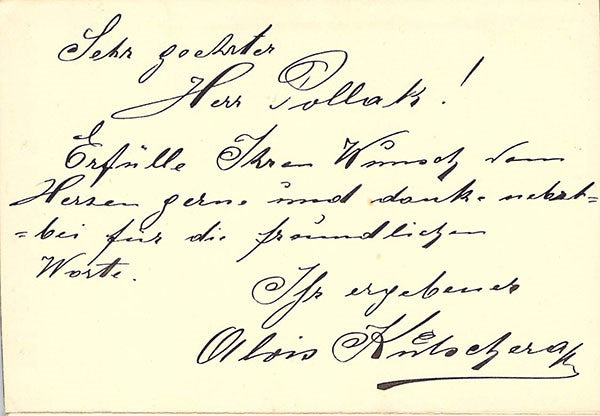 Sehr geehrter
Herr Pollak!
Erfülle Ihren Wunsch vom
Herzen gerne und danke nebst=
=bei für die freundlichen
Worte.
Ihr ergebener
Alois Kutschera